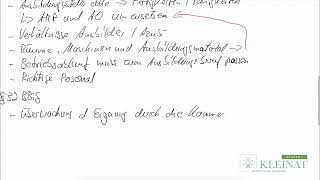 - Ausbildungsstelle alle → Fertigkeiten / Fähigkeiten
↳ ARP und AO umsetzen
- Verhältnisse Ausbilder / Azus
- Räume, Maschinen und Ausbildungsmaterial
- Betriebsablauf muss zum Ausbildungsberuf passen
- Richtige Personal
§ 32 BBiG
- Überwachung d. Eignung durch die Kammer
KLEINAT